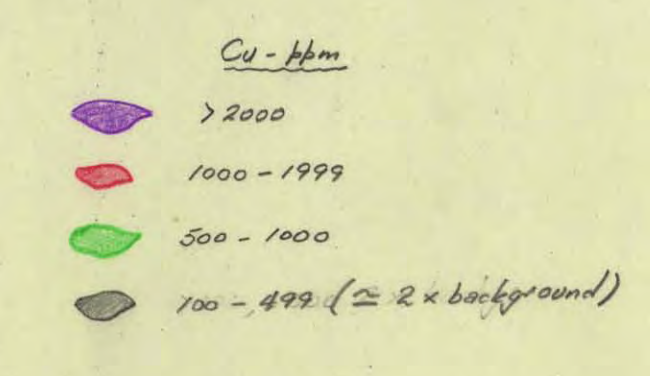 Cu - ppm
> 2000
1000 - 1999
500 - 1000
100 - 499 (≃ 2 x background)